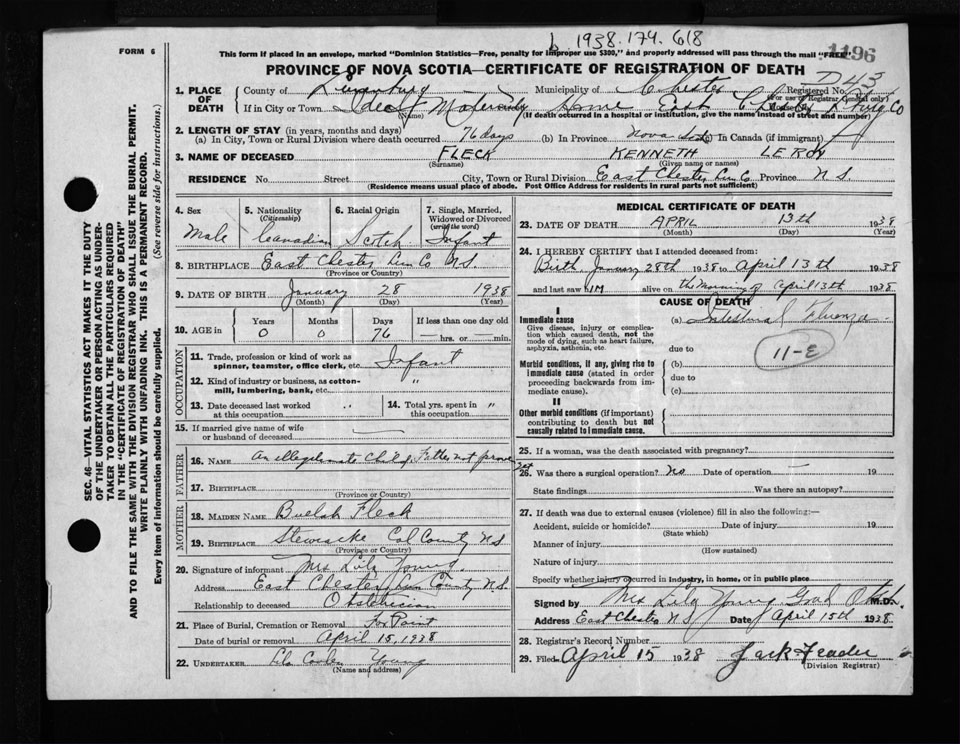 b 1938.174.618
1496
FORM 6
This form if placed in an envelope, marked "Dominion Statistics—Free, penalty for improper use $300," and properly addressed will pass through the mail "FREE".
PROVINCE OF NOVA SCOTIA—CERTIFICATE OF REGISTRATION OF DEATH
D43
1. PLACE OF DEATH County of Lunenburg Municipality of Chester Registered No.
(For use of Registrar General only)
If in City or Town Ideal Maternity Home East Chester Co
(Name) (If death occurred in a hospital or institution, give the name instead of street and number)
2. LENGTH OF STAY (in years, months and days)
(a) In City, Town or Rural Division where death occurred 76 days (b) In Province Nova Scotia (c) In Canada (if immigrant)
3. NAME OF DECEASED FLECK KENNETH LEROY
(Surname) (Given name or names)
RESIDENCE No. Street City, Town or Rural Division East Chester Lun Co Province N S
(Residence means usual place of abode. Post Office Address for residents in rural parts not sufficient)
4. Sex Male
5. Nationality (Citizenship) Canadian
6. Racial Origin Scotch
7. Single, Married, Widowed or Divorced (write the word) Infant
8. BIRTHPLACE East Chester Lun Co N.S.
(Province or Country)
9. DATE OF BIRTH January 28 1938
(Month) (Day) (Year)
10. AGE in Years Months Days If less than one day old
0 0 76 hrs. or min.
OCCUPATION
11. Trade, profession or kind of work as spinner, teamster, office clerk, etc. Infant
12. Kind of industry or business, as cotton-mill, lumbering, bank, etc. "
13. Date deceased last worked at this occupation " 14. Total yrs. spent in this occupation "
15. If married give name of wife or husband of deceased —
FATHER
16. NAME An illegitimate child, Father not proven yet
17. BIRTHPLACE
(Province or Country)
MOTHER
18. MAIDEN NAME Buelah Fleck
19. BIRTHPLACE Stewiacke Col County N S
(Province or Country)
20. Signature of informant Mrs Lila Young
Address East Chester Lun County N.S.
Relationship to deceased Obstetrician
21. Place of Burial, Cremation or Removal Fox Point
Date of burial or removal April 15, 1938
22. UNDERTAKER Young
(Name and address)
MEDICAL CERTIFICATE OF DEATH
23. DATE OF DEATH APRIL 13th 1938
(Month) (Day) (Year)
24. I HEREBY CERTIFY that I attended deceased from:
Birth, January 28th 1938 to April 13th 1938
and last saw him alive on the morning of April 13th 1938
CAUSE OF DEATH
I
Immediate cause
Give disease, injury or complication which caused death, not the mode of dying, such as heart failure, asphyxia, asthenia, etc.
(a) Intestinal Fluenza
due to
11-E
Morbid conditions, if any, giving rise to immediate cause (stated in order proceeding backwards from immediate cause).
(b)
due to
(c)
II
Other morbid conditions (if important) contributing to death but not causally related to immediate cause.
25. If a woman, was the death associated with pregnancy?
26. Was there a surgical operation? No Date of operation — 19
State findings Was there an autopsy?
27. If death was due to external causes (violence) fill in also the following:—
Accident, suicide or homicide? Date of injury 19
(State which)
Manner of injury
(How sustained)
Nature of injury
Specify whether injury occurred in industry, in home, or in public place
Signed by Mrs Lila Young M.D.
Address East Chester N S Date April 15th 1938
28. Registrar's Record Number
29. Filed April 15 1938 Jack Feader
(Division Registrar)
SEC. 46—VITAL STATISTICS ACT MAKES IT THE DUTY OF THE UNDERTAKER OR PERSON ACTING AS UNDERTAKER TO OBTAIN ALL THE PARTICULARS REQUIRED IN THE "CERTIFICATE OF REGISTRATION OF DEATH" AND TO FILE THE SAME WITH THE DIVISION REGISTRAR WHO SHALL ISSUE THE BURIAL PERMIT.
WRITE PLAINLY WITH UNFADING INK. THIS IS A PERMANENT RECORD.
Every item of information should be carefully supplied. (See reverse side for instructions.)